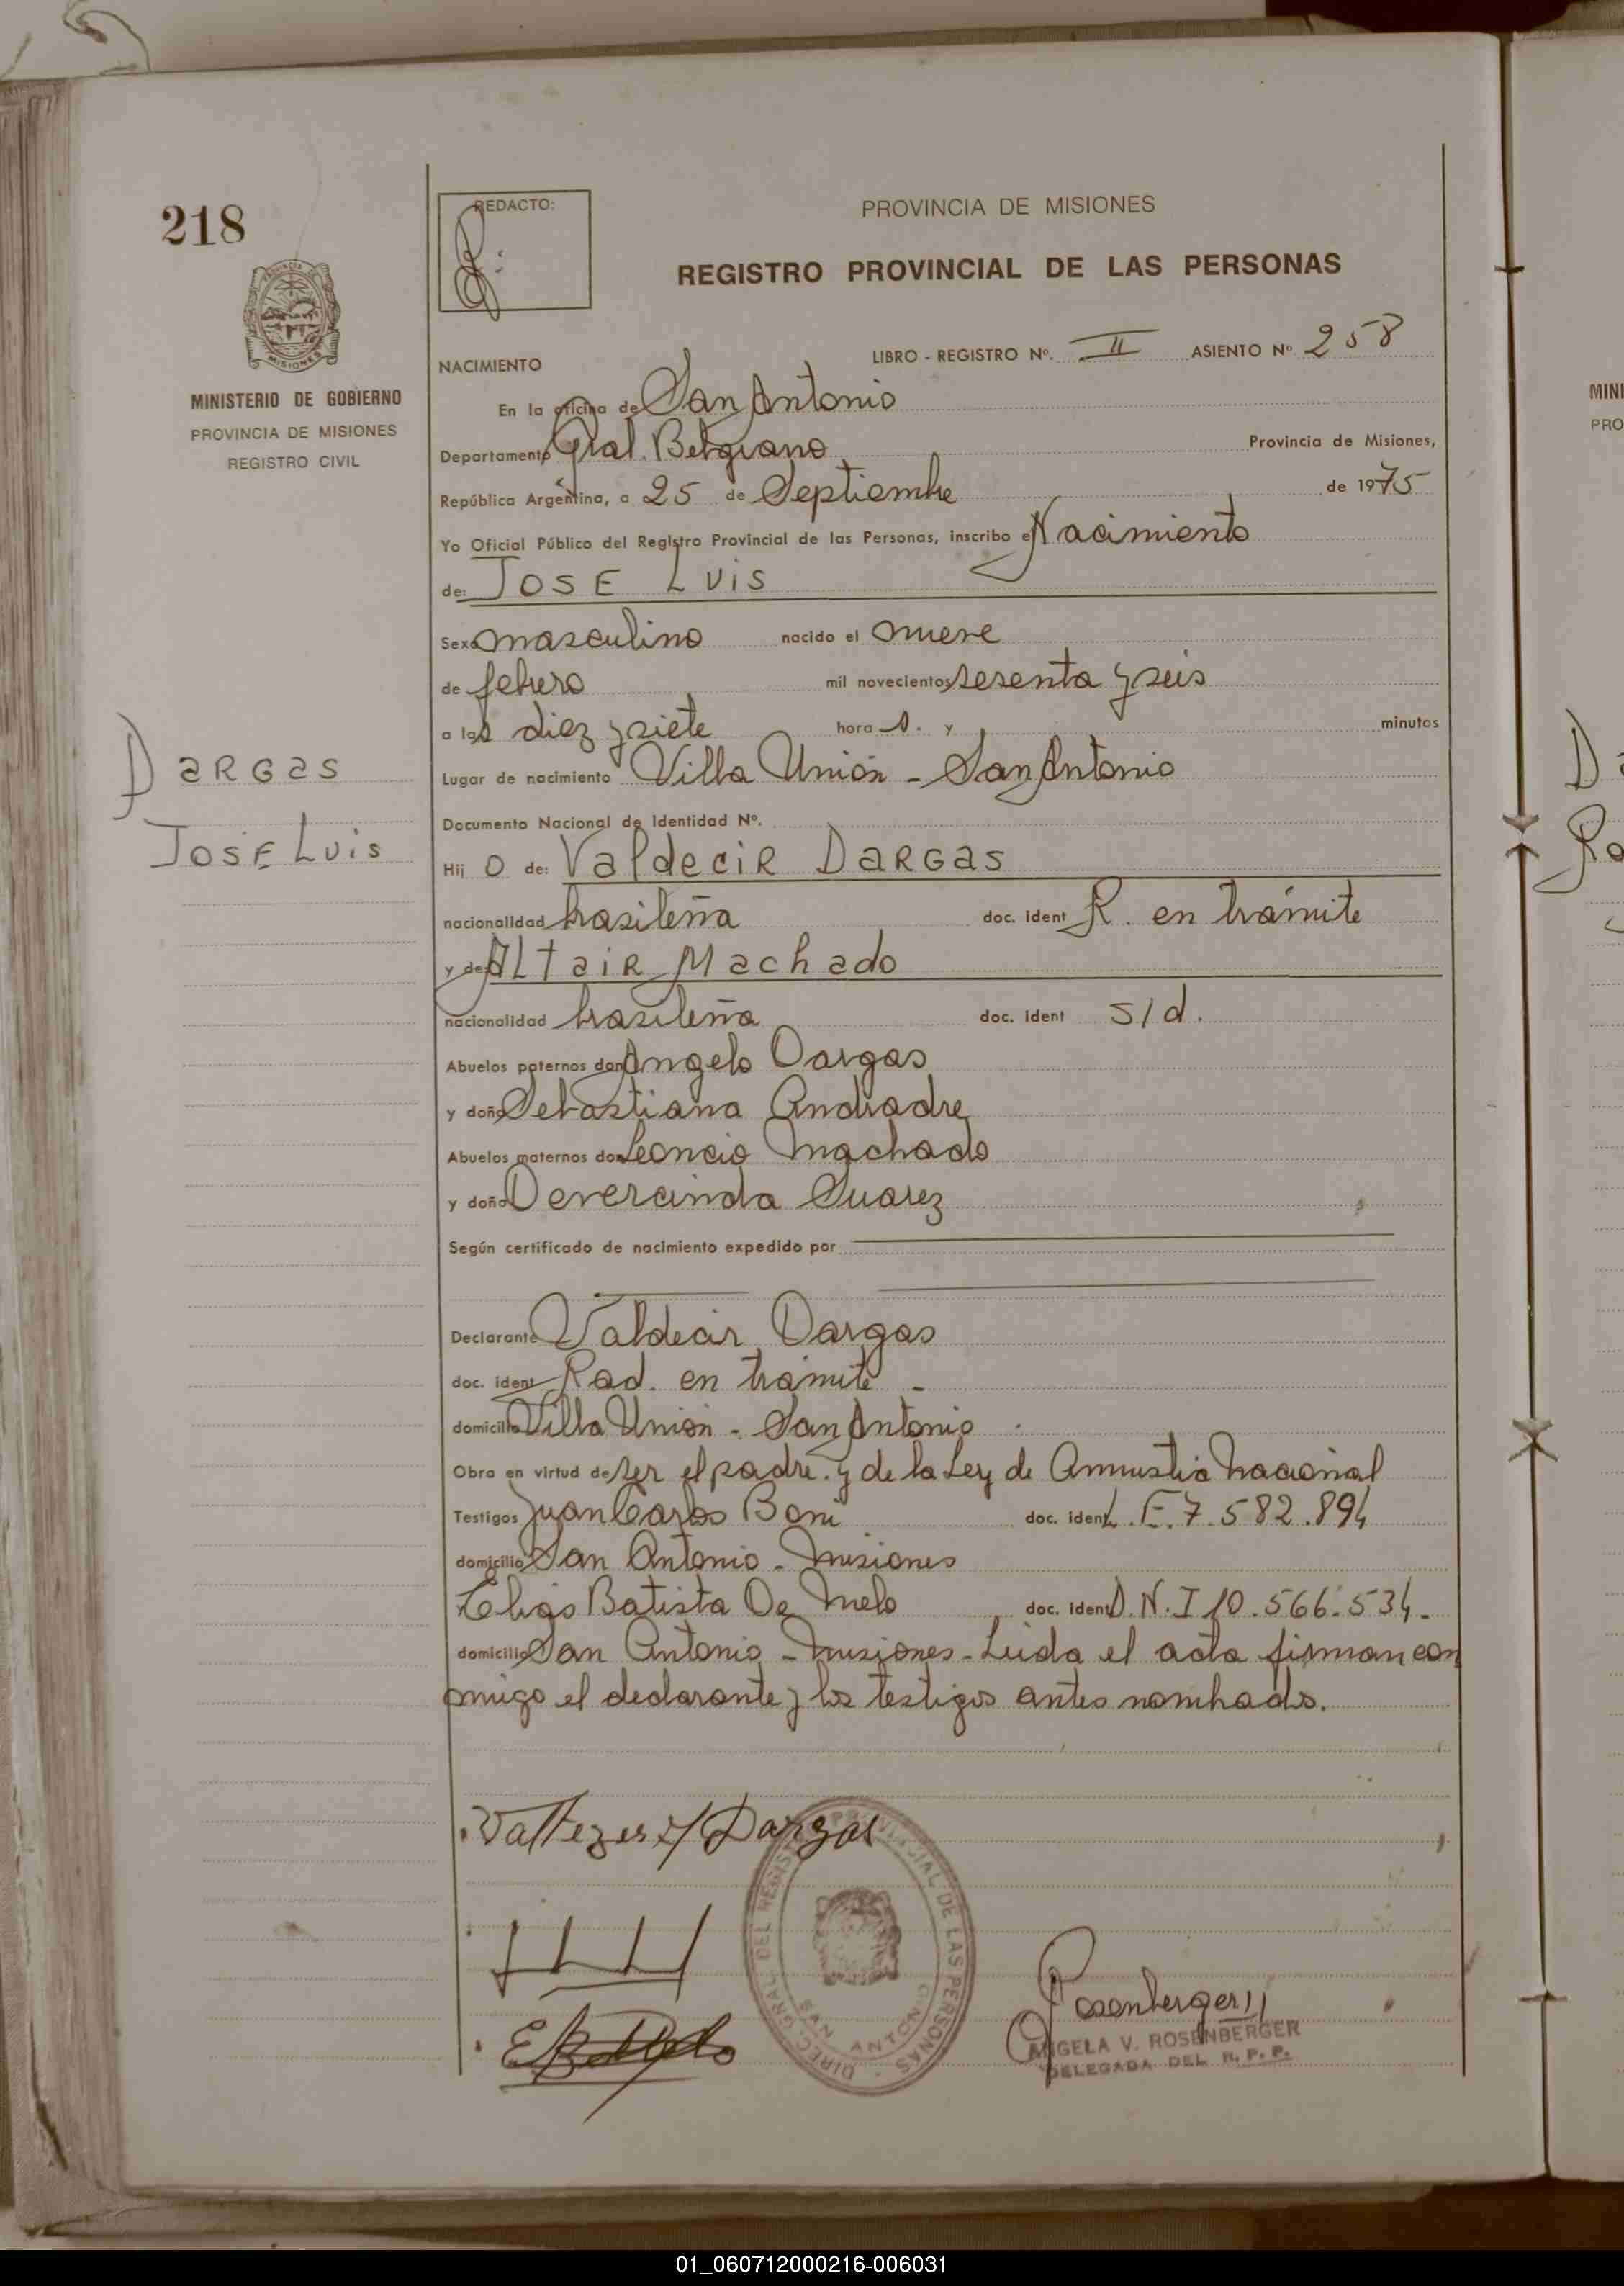 218
REDACTO:
PROVINCIA DE MISIONES
REGISTRO PROVINCIAL DE LAS PERSONAS
MISIONES
MINISTERIO DE GOBIERNO
PROVINCIA DE MISIONES
REGISTRO CIVIL
NACIMIENTO LIBRO - REGISTRO Nº. II ASIENTO Nº 258
En la oficina de San Antonio
Departamento Gral. Belgrano Provincia de Misiones,
República Argentina, a 25 de Septiembre de 1975
Yo Oficial Público del Registro Provincial de las Personas, inscribo el Nacimiento
de: JOSE LUIS
Sexo masculino nacido el nueve
de febrero mil novecientos sesenta y seis
a las diez y siete hora s. y minutos
Dargas
Jose Luis
Lugar de nacimiento Villa Unión - San Antonio
Documento Nacional de Identidad Nº.
Hij o de: Valdecir Dargas
nacionalidad brasileña doc. ident R. en trámite
y de: Altair Machado
nacionalidad brasileña doc. ident s/d.
Abuelos paternos don Angelo Dargas
y doña Sebastiana Andradre
Abuelos maternos don Leoncio Machado
y doña Devercinda Suarez
Según certificado de nacimiento expedido por
Declarante Valdecir Dargas
doc. ident Rad. en trámite -
domicilio Villa Unión - San Antonio
Obra en virtud de ser el padre. y de la Ley de Amnistia Nacional
Testigos Juan Carlos Boni doc. ident L.E. 7.582.894
domicilio San Antonio - Misiones
Elias Batista De Melo doc. ident D.N.I 10.566.534.
domicilio San Antonio - Misiones - Leida el acta firman con
migo el declarante y los testigos antes nombrados.
Dargas
DIRECC. GRAL. DEL REGISTRO PROVINCIAL DE LAS PERSONAS
SAN ANTONIO
Rosenberger
ANGELA V. ROSENBERGER
DELEGADA DEL R. P. P.
MINI
PRO
01_060712000216-006031